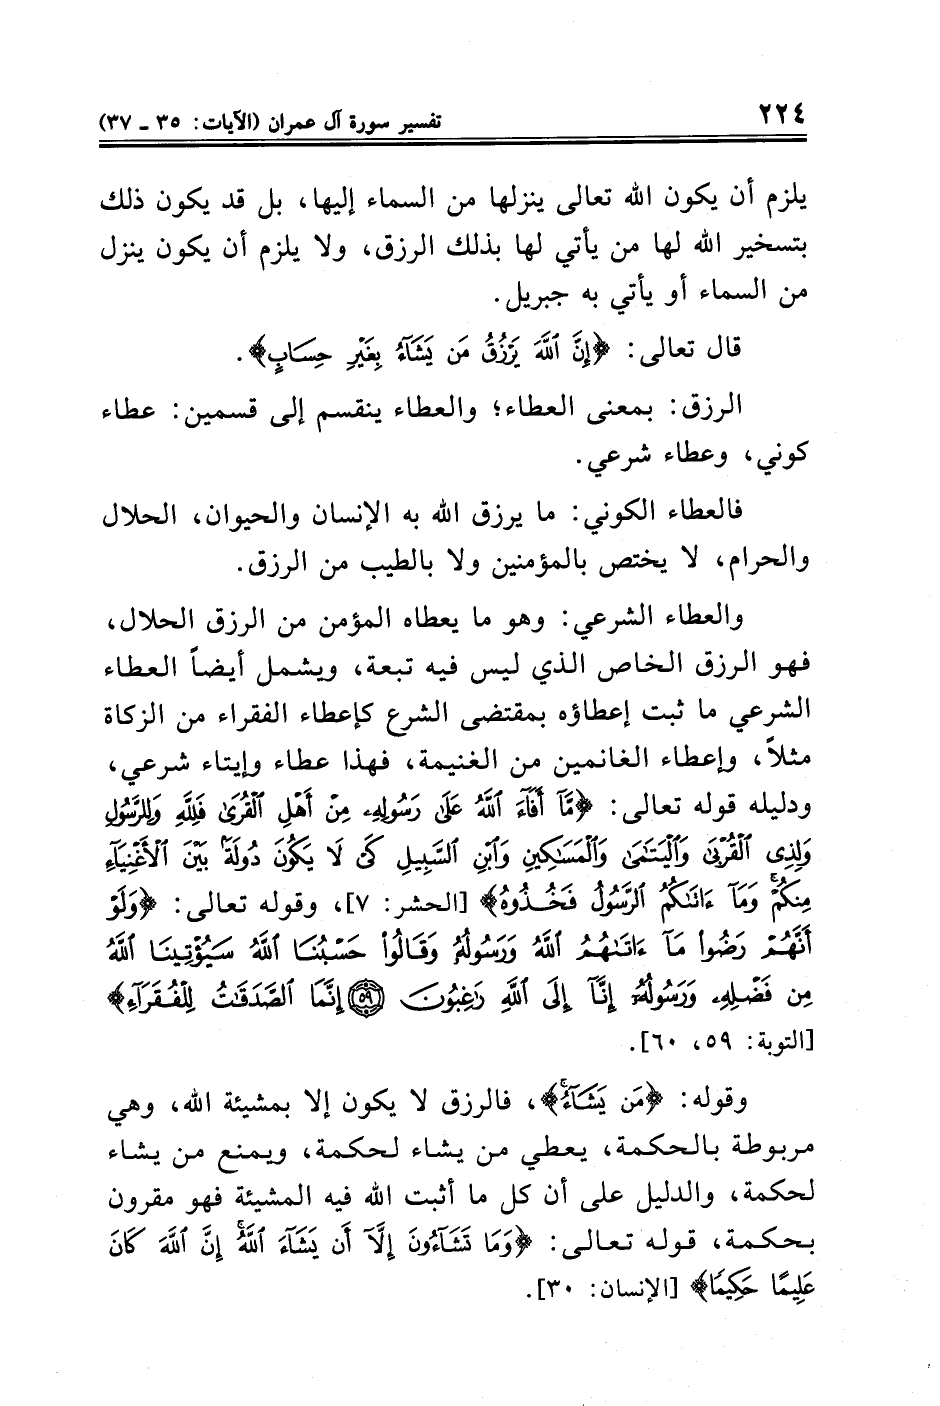 ٢٢٤ تفسير سورة آل عمران (الآيات: ٣٥ ـ ٣٧)
يلزم أن يكون الله تعالى ينزلها من السماء إليها، بل قد يكون ذلك
بتسخير الله لها من يأتي لها بذلك الرزق، ولا يلزم أن يكون ينزل
من السماء أو يأتي به جبريل.
قال تعالى: ﴿إِنَّ ٱللَّهَ يَرْزُقُ مَن يَشَآءُ بِغَيْرِ حِسَابٍ﴾.
الرزق: بمعنى العطاء؛ والعطاء ينقسم إلى قسمين: عطاء
كوني، وعطاء شرعي.
فالعطاء الكوني: ما يرزق الله به الإنسان والحيوان، الحلال
والحرام، لا يختص بالمؤمنين ولا بالطيب من الرزق.
والعطاء الشرعي: وهو ما يعطاه المؤمن من الرزق الحلال،
فهو الرزق الخاص الذي ليس فيه تبعة، ويشمل أيضاً العطاء
الشرعي ما ثبت إعطاؤه بمقتضى الشرع كإعطاء الفقراء من الزكاة
مثلاً، وإعطاء الغانمين من الغنيمة، فهذا عطاء وإيتاء شرعي،
ودليله قوله تعالى: ﴿مَّآ أَفَآءَ ٱللَّهُ عَلَىٰ رَسُولِهِۦ مِنْ أَهْلِ ٱلْقُرَىٰ فَلِلَّهِ وَلِلرَّسُولِ
وَلِذِى ٱلْقُرْبَىٰ وَٱلْيَتَٰمَىٰ وَٱلْمَسَٰكِينِ وَٱبْنِ ٱلسَّبِيلِ كَىْ لَا يَكُونَ دُولَةًۢ بَيْنَ ٱلْأَغْنِيَآءِ
مِنكُمْ ۚ وَمَآ ءَاتَىٰكُمُ ٱلرَّسُولُ فَخُذُوهُ﴾ [الحشر: ٧]، وقوله تعالى: ﴿وَلَوْ
أَنَّهُمْ رَضُوا۟ مَآ ءَاتَىٰهُمُ ٱللَّهُ وَرَسُولُهُۥ وَقَالُوا۟ حَسْبُنَا ٱللَّهُ سَيُؤْتِينَا ٱللَّهُ
مِن فَضْلِهِۦ وَرَسُولُهُۥٓ إِنَّآ إِلَى ٱللَّهِ رَٰغِبُونَ ﴿٥٩﴾ إِنَّمَا ٱلصَّدَقَٰتُ لِلْفُقَرَآءِ﴾
[التوبة: ٥٩، ٦٠].
وقوله: ﴿مَن يَشَآءُ ۚ﴾، فالرزق لا يكون إلا بمشيئة الله، وهي
مربوطة بالحكمة، يعطي من يشاء لحكمة، ويمنع من يشاء
لحكمة، والدليل على أن كل ما أثبت الله فيه المشيئة فهو مقرون
بحكمة، قوله تعالى: ﴿وَمَا تَشَآءُونَ إِلَّآ أَن يَشَآءَ ٱللَّهُ ۚ إِنَّ ٱللَّهَ كَانَ
عَلِيمًا حَكِيمًا﴾ [الإنسان: ٣٠].